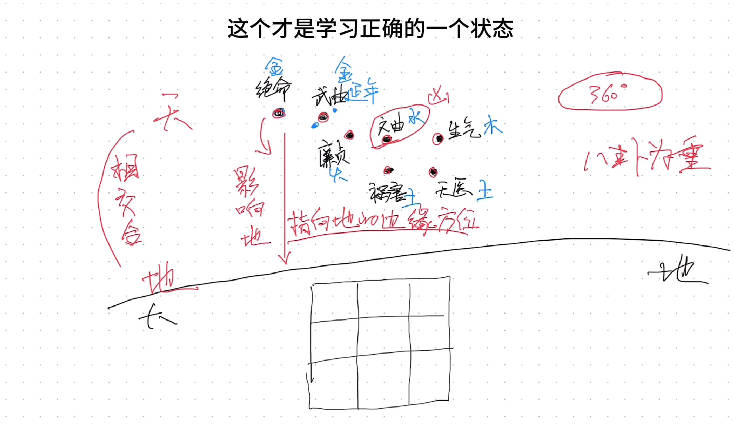 这个才是学习正确的一个状态
金
绝命
金
武曲 延年
文曲 水
凶
生气 木
廉贞
火
祸害 土
天医 土
360°
八卦为重
天
相交合
地
影响地
指向地的边缘方位
天
地